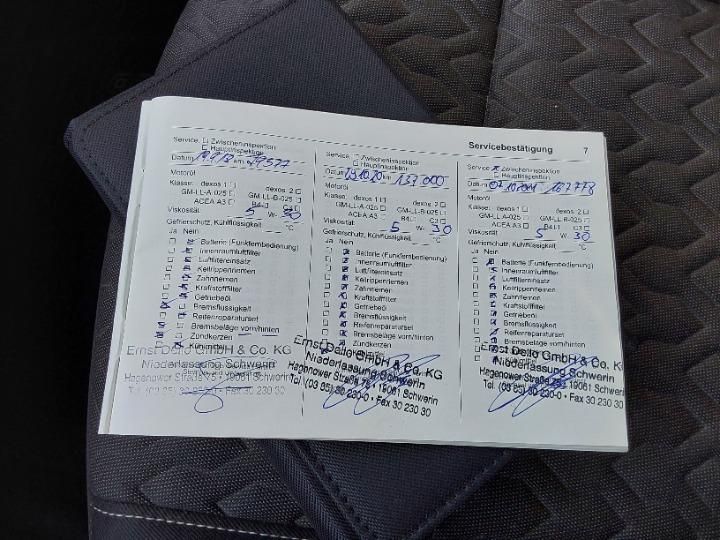 Servicebestätigung 7
Service: □ Zwischeninspektion
□ Hauptinspektion
Datum km
Motoröl
Klasse: dexos 1 □ dexos 2 □
GM-LL-A-025 □ GM-LL-B-025 □
ACEA A3 □ B4 □ C3 □
Viskosität: 5 W- 30
Gefrierschutz, Kühlflüssigkeit °C
Ja Nein
Batterie (Funkfernbedienung)
Innenraumluftfilter
Luftfiltereinsatz
Keilrippenriemen
Zahnriemen
Kraftstofffilter
Getriebeöl
Bremsflüssigkeit
Reifenreparaturset
Bremsbeläge vorn/hinten
Zündkerzen
Kühlmittel
Ernst Dello GmbH & Co. KG
Niederlassung Schwerin
Hagenower Straße 75 • 19061 Schwerin
Tel. (03 85) 30 230-0 • Fax 30 230 30
Service: □ Zwischeninspektion
□ Hauptinspektion
Datum km 137 000
Motoröl
Klasse: dexos 1 □ dexos 2 □
GM-LL-A-025 □ GM-LL-B-025 □
ACEA A3 □ B4 □ C3 □
Viskosität: 5 W- 30
Gefrierschutz, Kühlflüssigkeit °C
Ja Nein
Batterie (Funkfernbedienung)
Innenraumluftfilter
Luftfiltereinsatz
Keilrippenriemen
Zahnriemen
Kraftstofffilter
Getriebeöl
Bremsflüssigkeit
Reifenreparaturset
Bremsbeläge vorn/hinten
Zündkerzen
Ernst Dello GmbH & Co. KG
Niederlassung Schwerin
Hagenower Straße 75 • 19061 Schwerin
Tel. (03 85) 30 230-0 • Fax 30 230 30
Service: Zwischeninspektion
□ Hauptinspektion
Datum
Motoröl
Klasse: dexos 1 □ dexos 2 □
GM-LL-A-025 □ GM-LL-B-025 □
ACEA A3 □ B4 □ C3 □
Viskosität: 5 W- 30
Gefrierschutz, Kühlflüssigkeit °C
Ja Nein
Batterie (Funkfernbedienung)
Innenraumluftfilter
Luftfiltereinsatz
Keilrippenriemen
Zahnriemen
Kraftstofffilter
Getriebeöl
Bremsflüssigkeit
Reifenreparaturset
Bremsbeläge vorn/hinten
Ernst Dello GmbH & Co. KG
Niederlassung Schwerin
Hagenower Straße 75 • 19061 Schwerin
Tel. (03 85) 30 230-0 • Fax 30 230 30